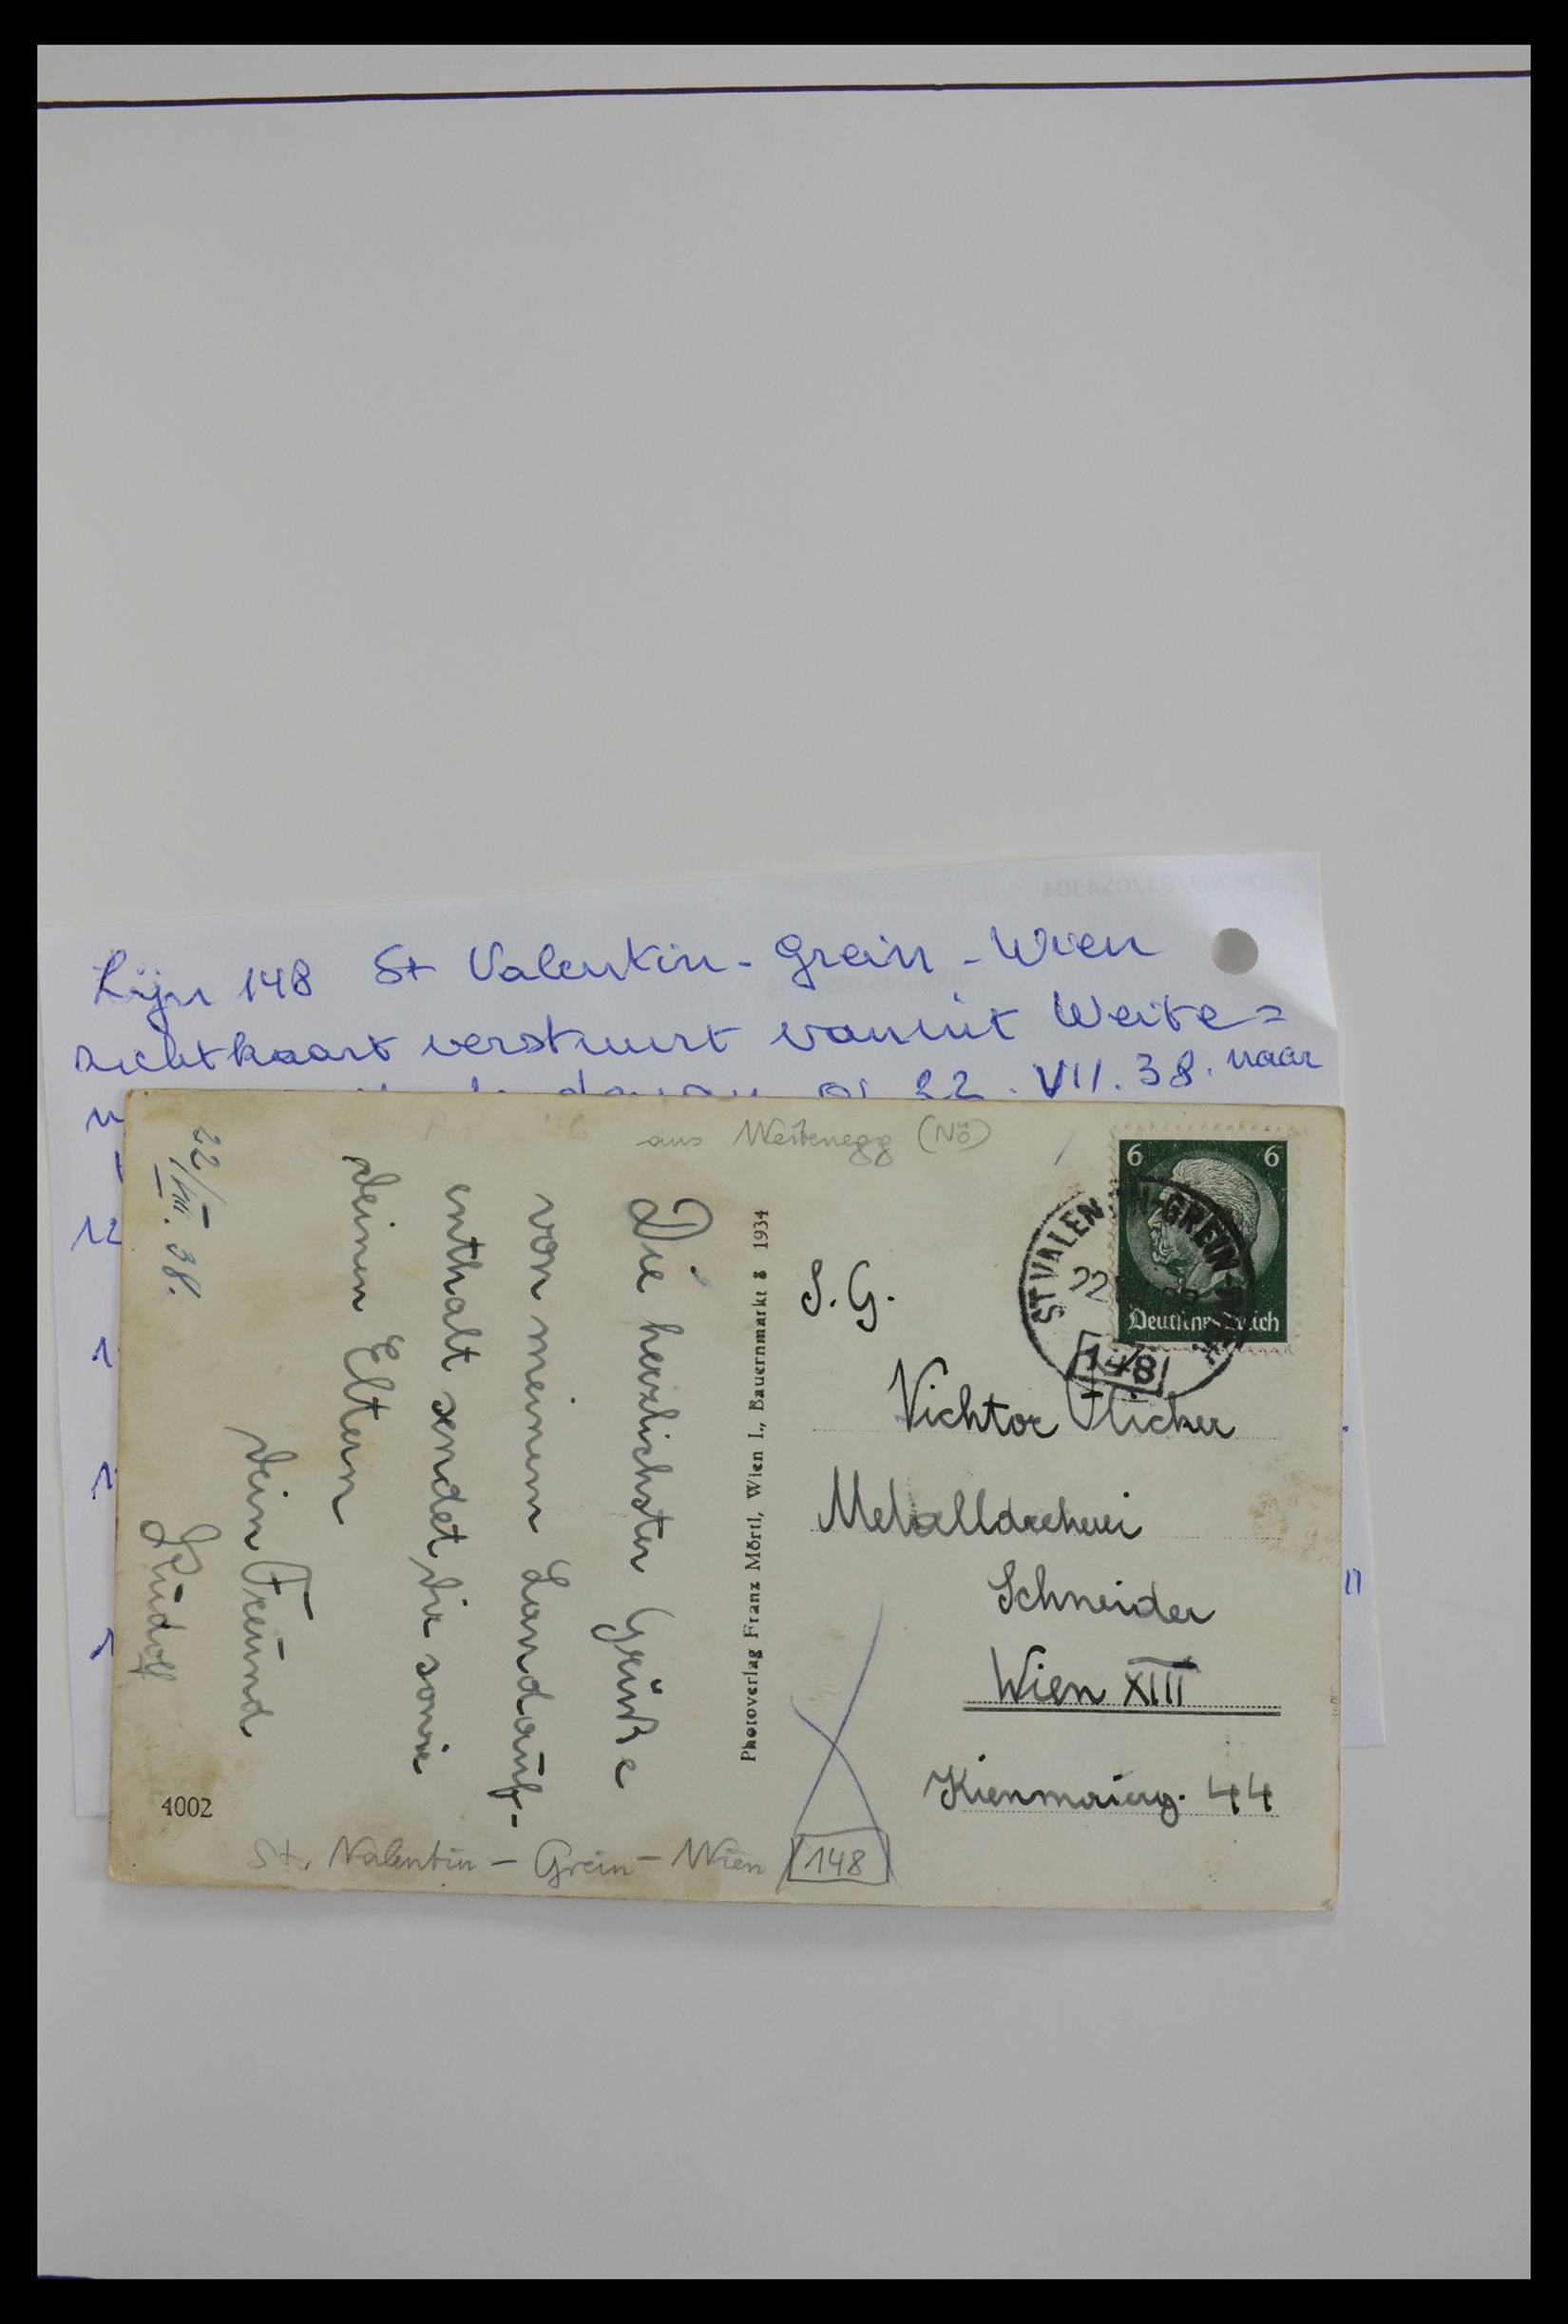 Lijn 148 St Valentin - Grein - Wien
zichtkaart verstuurt vanuit Weite=
22. VII. 38. naar
12
aus Weitenegg (NÖ)
22/VII. 38.
Die herzlichsten Grüße
von meinem Landauf-
enthalt sendet dir sowie
deinen Eltern
dein Freund
Rudolf
4002
Photoverlag Franz Mörtl, Wien I., Bauernmarkt 8 1934
6 6
Deutsches Reich
ST VALENTIN-GREIN-WIEN
22
148
S. G.
Vichtor Flicker
Metalldreherei
Schneider
Wien XIII
Kienmaierg. 44
St. Valentin - Grein - Wien 148